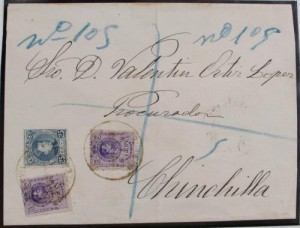 Nº 105 Nº 105
Sro. D. Valentin Ortiz Lopez
Procurador
Chinchilla